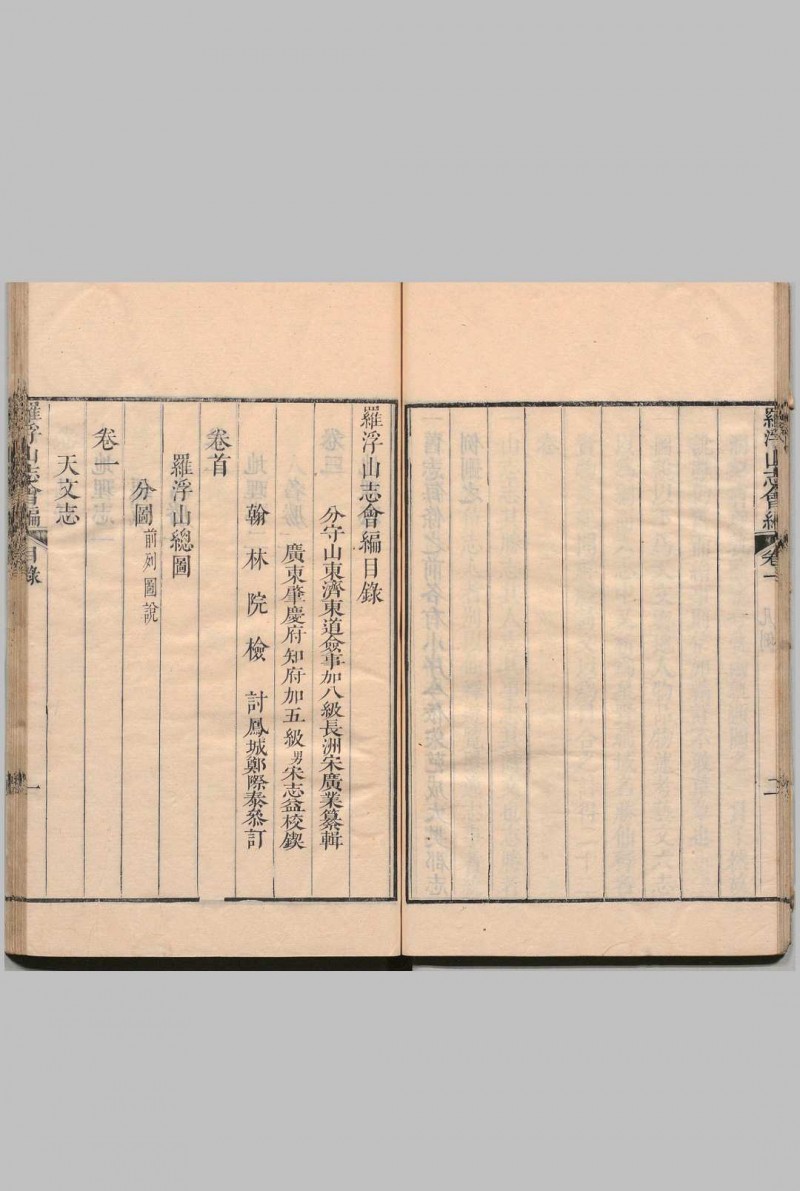 羅浮山志會編 卷一 凡例 二
羅浮山志會編目錄
分守山東濟東道僉事加八級長洲宋廣業纂輯
廣東肇慶府知府加五級男宋志益校鍥
翰林院檢討鳳城鄭際泰叅訂
卷首
羅浮山總圖
分圖前列圖說
卷一
天文志
羅浮山志會編 目錄 一